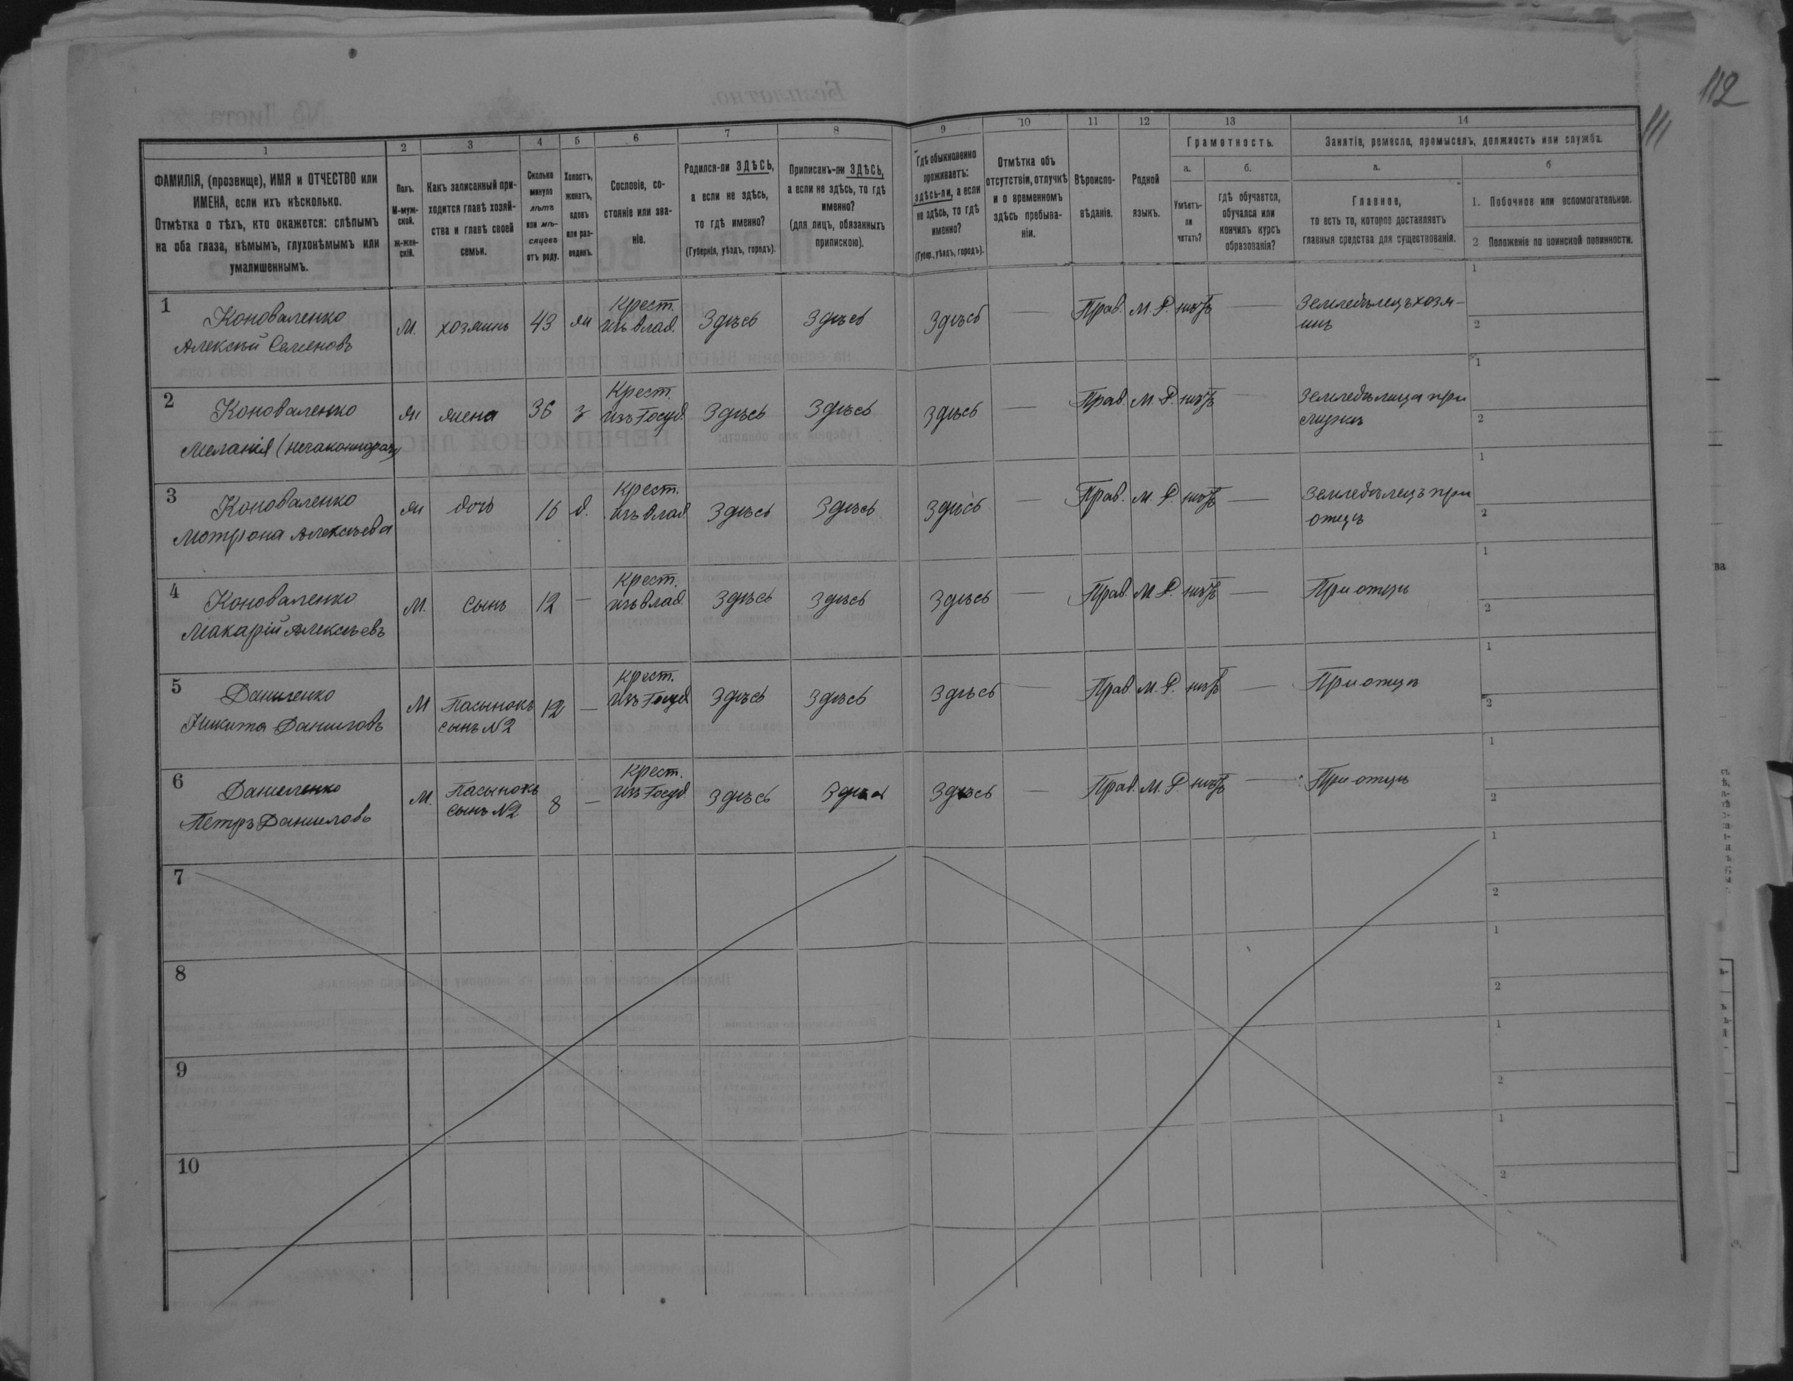 112
111
1
2
3
4
5
6
7
8
9
10
11
12
13
14
ФАМИЛІЯ, (прозвище), ИМЯ и ОТЧЕСТВО или
ИМЕНА, если ихъ нѣсколько.
Отмѣтка о тѣхъ, кто окажется: слѣпымъ
на оба глаза, нѣмымъ, глухонѣмымъ или
умалишеннымъ.
Полъ.
М-муж-
ской.
Ж-жен-
скій.
Какъ записанный при-
ходится главѣ хозяй-
ства и главѣ своей
семьи.
Сколько
минуло
лѣтъ
или мѣ-
сяцевъ
отъ роду.
Холостъ,
женатъ,
вдовъ
или раз-
веденъ.
Сословіе, со-
стояніе или зва-
ніе.
Родился-ли ЗДѢСЬ,
а если не здѣсь,
то гдѣ именно?
(Губернія, уѣздъ, городъ).
Приписанъ-ли ЗДѢСЬ,
а если не здѣсь, то гдѣ
именно?
(для лицъ, обязанныхъ
припискою).
Гдѣ обыкновенно
проживаетъ:
здѣсь-ли, а если
не здѣсь, то гдѣ
именно?
(Губер., уѣздъ, городъ).
Отмѣтка объ
отсутствіи, отлучкѣ
и о временномъ
здѣсь пребыва-
ніи.
Вѣроиспо-
вѣданіе.
Родной
языкъ.
Грамотность.
а.
б.
Умѣетъ-
ли
читать?
гдѣ обучается,
обучался или
кончилъ курсъ
образованія?
Занятіе, ремесло, промыселъ, должность или служба.
а.
б
Главное,
то есть то, которое доставляетъ
главныя средства для существованія.
1. Побочное или вспомогательное.
2 Положеніе по воинской повинности.
1 Коноваленко
Алексѣй Семеновъ
М. хозяинъ 43 ж
Крест.
изъ влад.
Здѣсь Здѣсь Здѣсь — Прав. М. Р. нѣтъ —
Земледѣлецъ хозя-
инъ
1
2
2 Коноваленко
Меланія
ж жена 36 з
Крест.
изъ Госуд
Здѣсь Здѣсь Здѣсь — Прав. М. Р. нѣтъ —
Земледѣлица при
мужѣ
1
2
3 Коноваленко
Мотрона Алексѣева
ж дочь 16 д.
Крест.
изъ влад
Здѣсь Здѣсь Здѣсь — Прав. М. Р. нѣтъ —
Земледѣлецъ при
отцѣ
1
2
4 Коноваленко
Макарій Алексѣевъ
М. сынъ 12 —
Крест.
изъ влад
Здѣсь Здѣсь Здѣсь — Прав. М. Р. нѣтъ —
При отцѣ
1
2
5 Даниленко
Никита Даниловъ
М Пасынокъ
сынъ №2
12 —
Крест.
изъ Госуд
Здѣсь Здѣсь Здѣсь — Прав М. Р. нѣтъ —
При отцѣ
1
2
6 Даниленко
Петръ Даниловъ
М. Пасынокъ
сынъ №2
8 —
Крест.
изъ Госуд
Здѣсь Здѣсь Здѣсь — Прав. М. Р нѣтъ —
При отцѣ
1
2
7
1
2
8
1
2
9
1
2
10
1
2